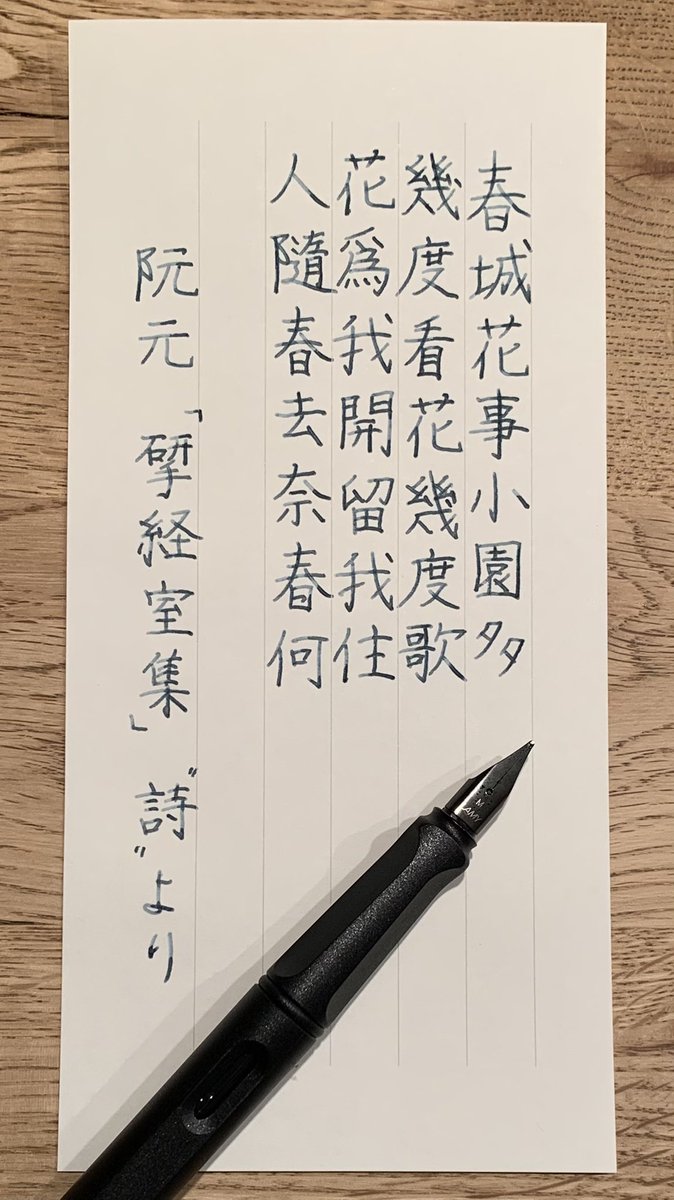 春城花事小園多
幾度看花幾度歌
花爲我開留我住
人隨春去奈春何
阮元「揅経室集」“詩”より
M
LAMY